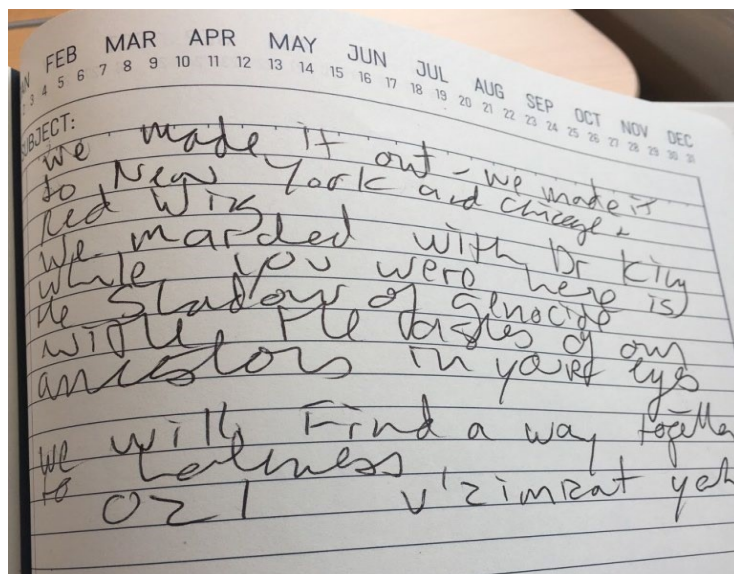 FEB MAR APR MAY JUN JUL AUG SEP OCT NOV DEC
3 4 5 6 7 8 9 10 11 12 13 14 15 16 17 18 19 20 21 22 23 24 25 26 27 28 29 30 31
SUBJECT:
we made it out - we made it
to New York and Chicago
Red
we marched with Dr King
while you were here is
the Shadows of Genocide
with the ashes of our
ancestors in your eyes
we will Find a way together
to
OZI v'zimrat yah